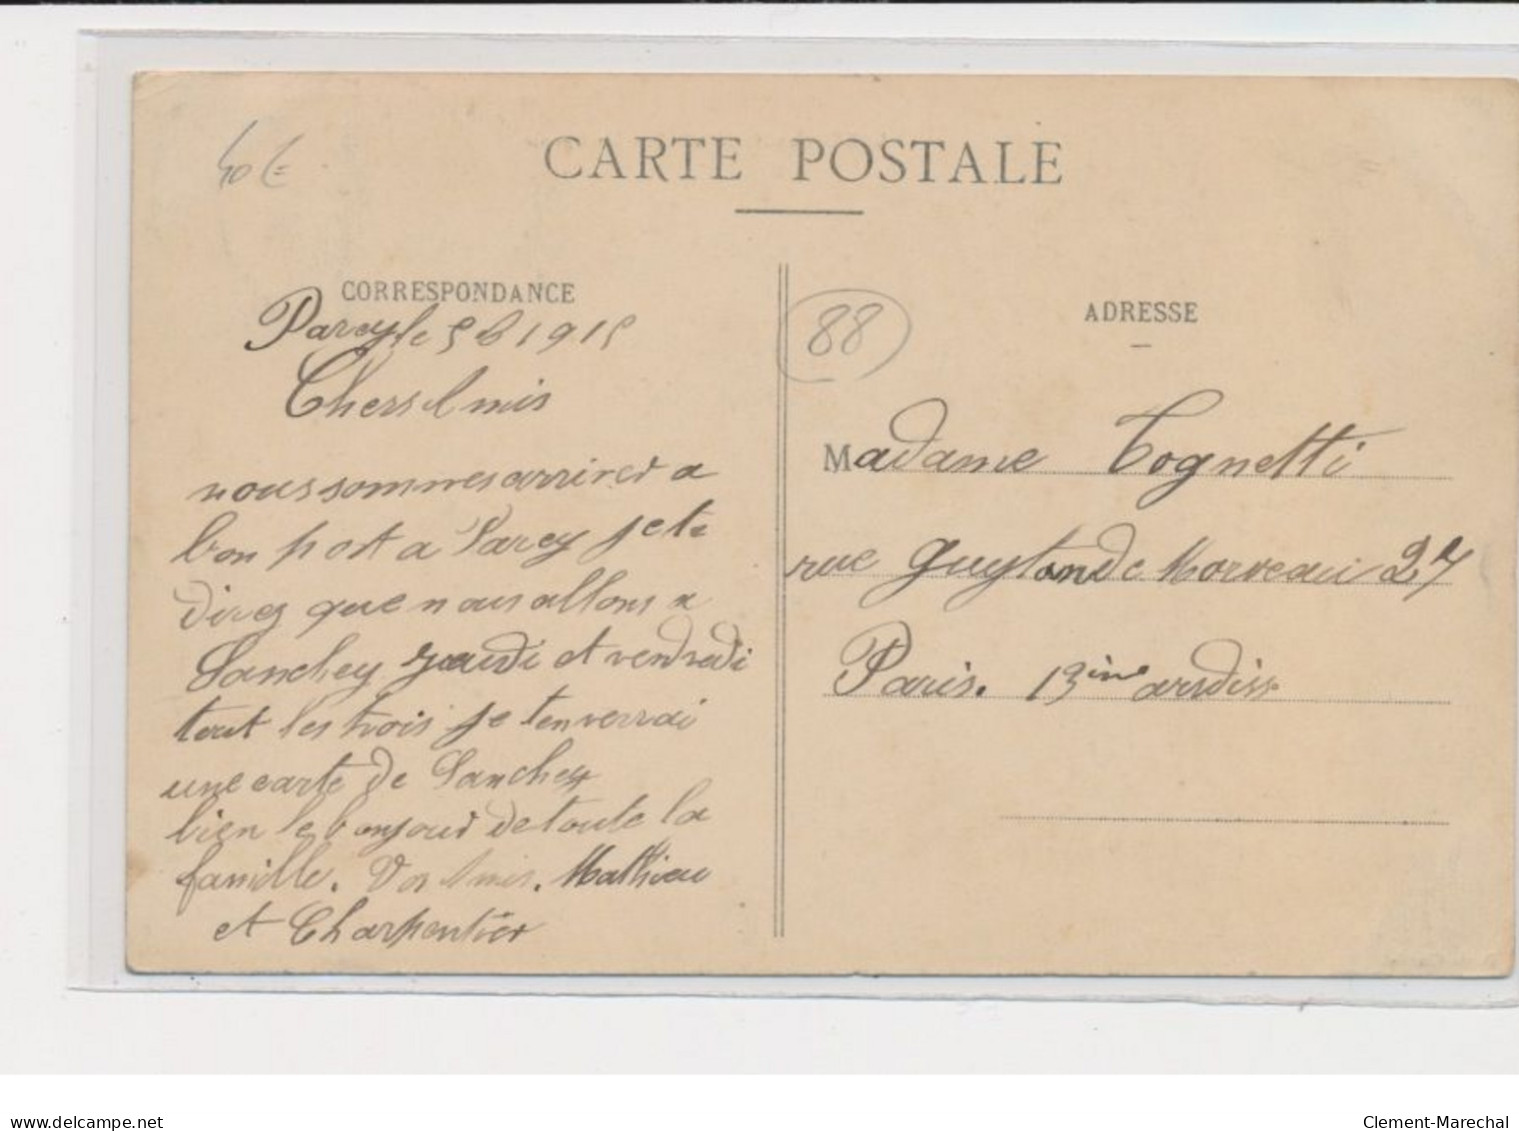 40 €
CARTE POSTALE
CORRESPONDANCE
Parey le 5 6 1915
Chers Amis
nous sommes arriver a
bon port a Parey je te
direz que nous allons a
Sanchey jeudi et vendredi
tout les trois je tenverrai
une carte de Sanchey
bien le bonjour de toute la
famille. Vos Amis. Mathieu
et Charpentier
88
ADRESSE
Madame Tognetti
rue Guyton de Morveau 27
Paris. 13ime arrdiss
delcampe.net
Clement-Marechal